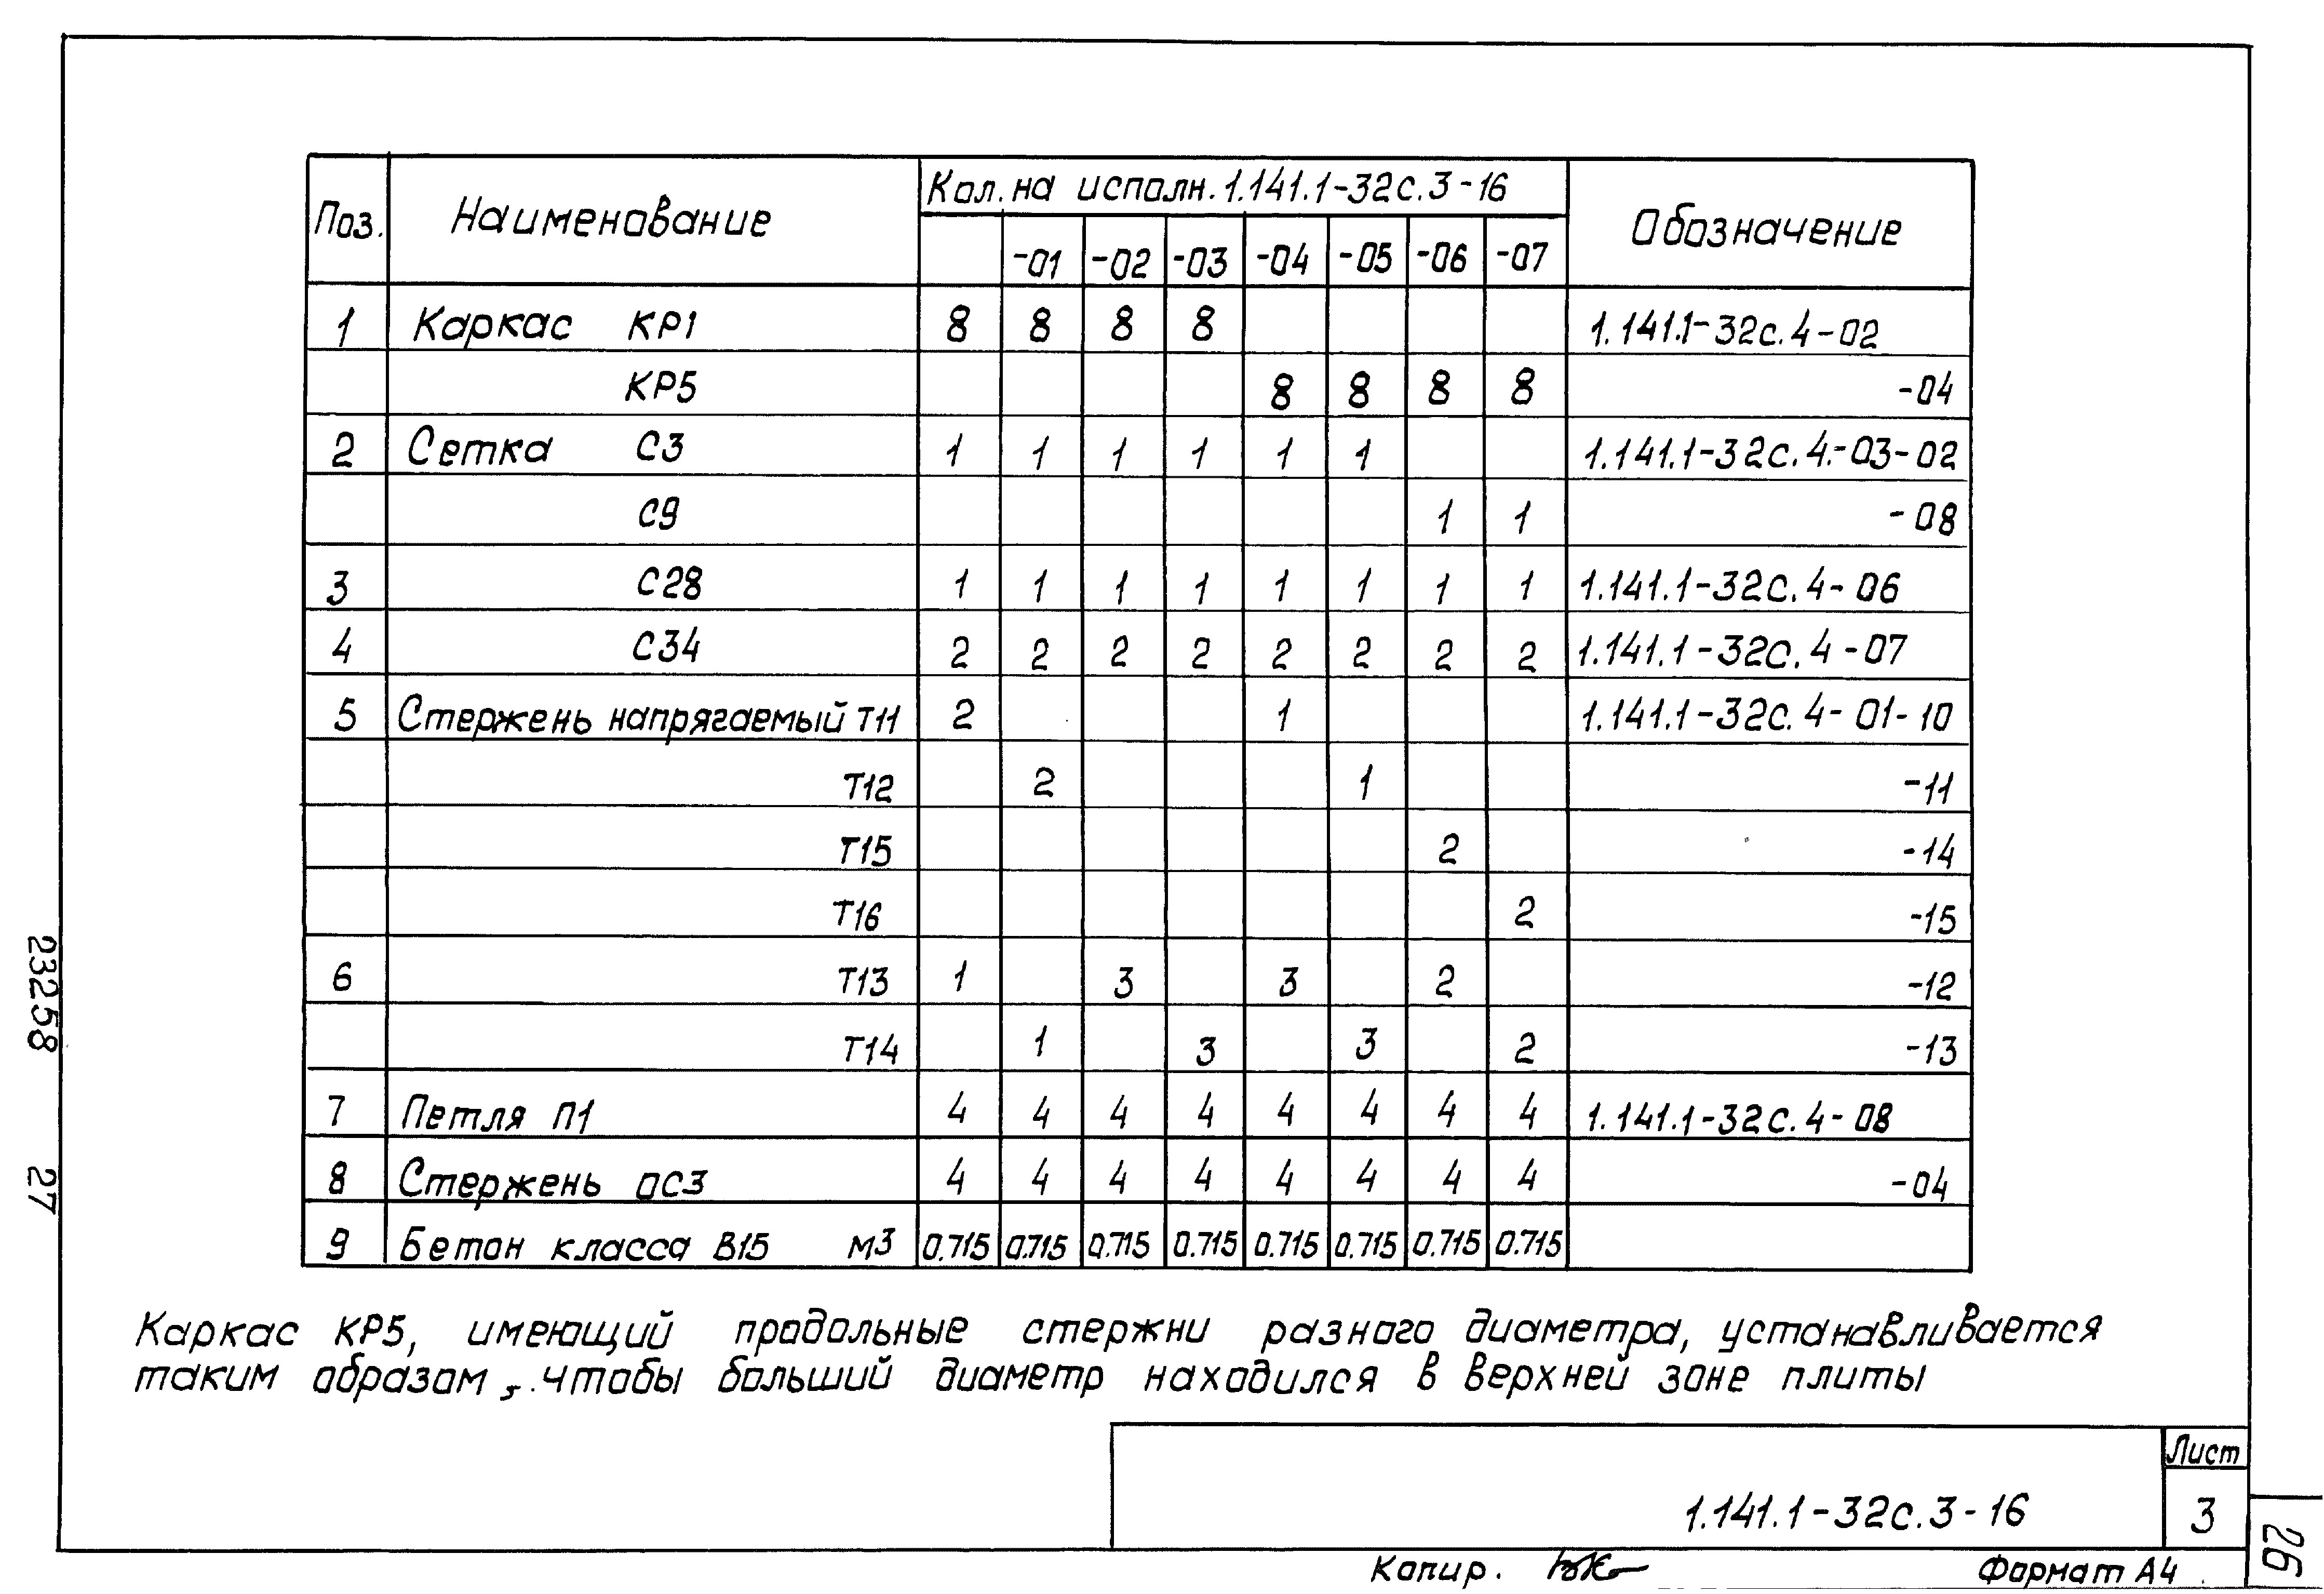 Поз. Наименование Кол. на исполн. 1.141.1-32с.3-16 Обозначение
-01 -02 -03 -04 -05 -06 -07
1 Каркас КР1 8 8 8 8 1.141.1-32с.4-02
КР5 8 8 8 8 -04
2 Сетка С3 1 1 1 1 1 1 1.141.1-32с.4.-03-02
С9 1 1 -08
3 С28 1 1 1 1 1 1 1 1 1.141.1-32с.4-06
4 С34 2 2 2 2 2 2 2 2 1.141.1-32с.4-07
5 Стержень напрягаемый Т11 2 1 1.141.1-32с.4-01-10
Т12 2 1 -11
Т15 2 -14
Т16 2 -15
6 Т13 1 3 3 2 -12
Т14 1 3 3 2 -13
7 Петля П1 4 4 4 4 4 4 4 4 1.141.1-32с.4-08
8 Стержень ОС3 4 4 4 4 4 4 4 4 -04
9 Бетон класса В15 м3 0.715 0.715 0.715 0.715 0.715 0.715 0.715 0.715
Каркас КР5, имеющий продольные стержни разного диаметра, устанавливается
таким образом, чтобы больший диаметр находился в верхней зоне плиты
1.141.1-32с.3-16
Лист
3
Копир.
Формат А4
23258 27
26